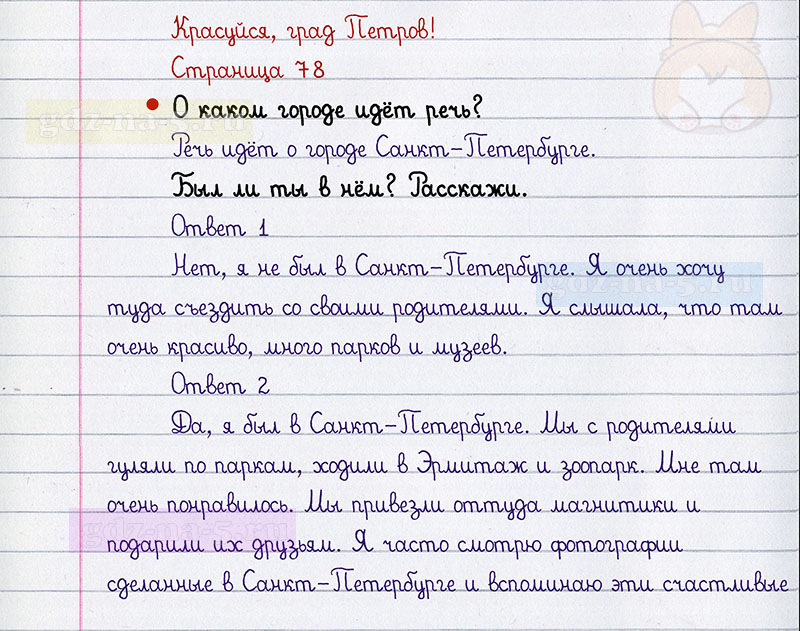 Красуйся, град Петров!
Страница 78
О каком городе идёт речь?
gdz-na-s.ru
Речь идёт о городе Санкт-Петербурге.
Был ли ты в нём? Расскажи.
Ответ 1
Нет, я не был в Санкт-Петербурге. Я очень хочу
gdz-na-s.ru
туда съездить со своими родителями. Я слышала, что там
очень красиво, много парков и музеев.
Ответ 2
Да, я был в Санкт-Петербурге. Мы с родителями
гуляли по паркам, ходили в Эрмитаж и зоопарк. Мне там
очень понравилось. Мы привезли оттуда магнитики и
gdz-na-s.ru
подарили их друзьям. Я часто смотрю фотографии
сделанные в Санкт-Петербурге и вспоминаю эти счастливые